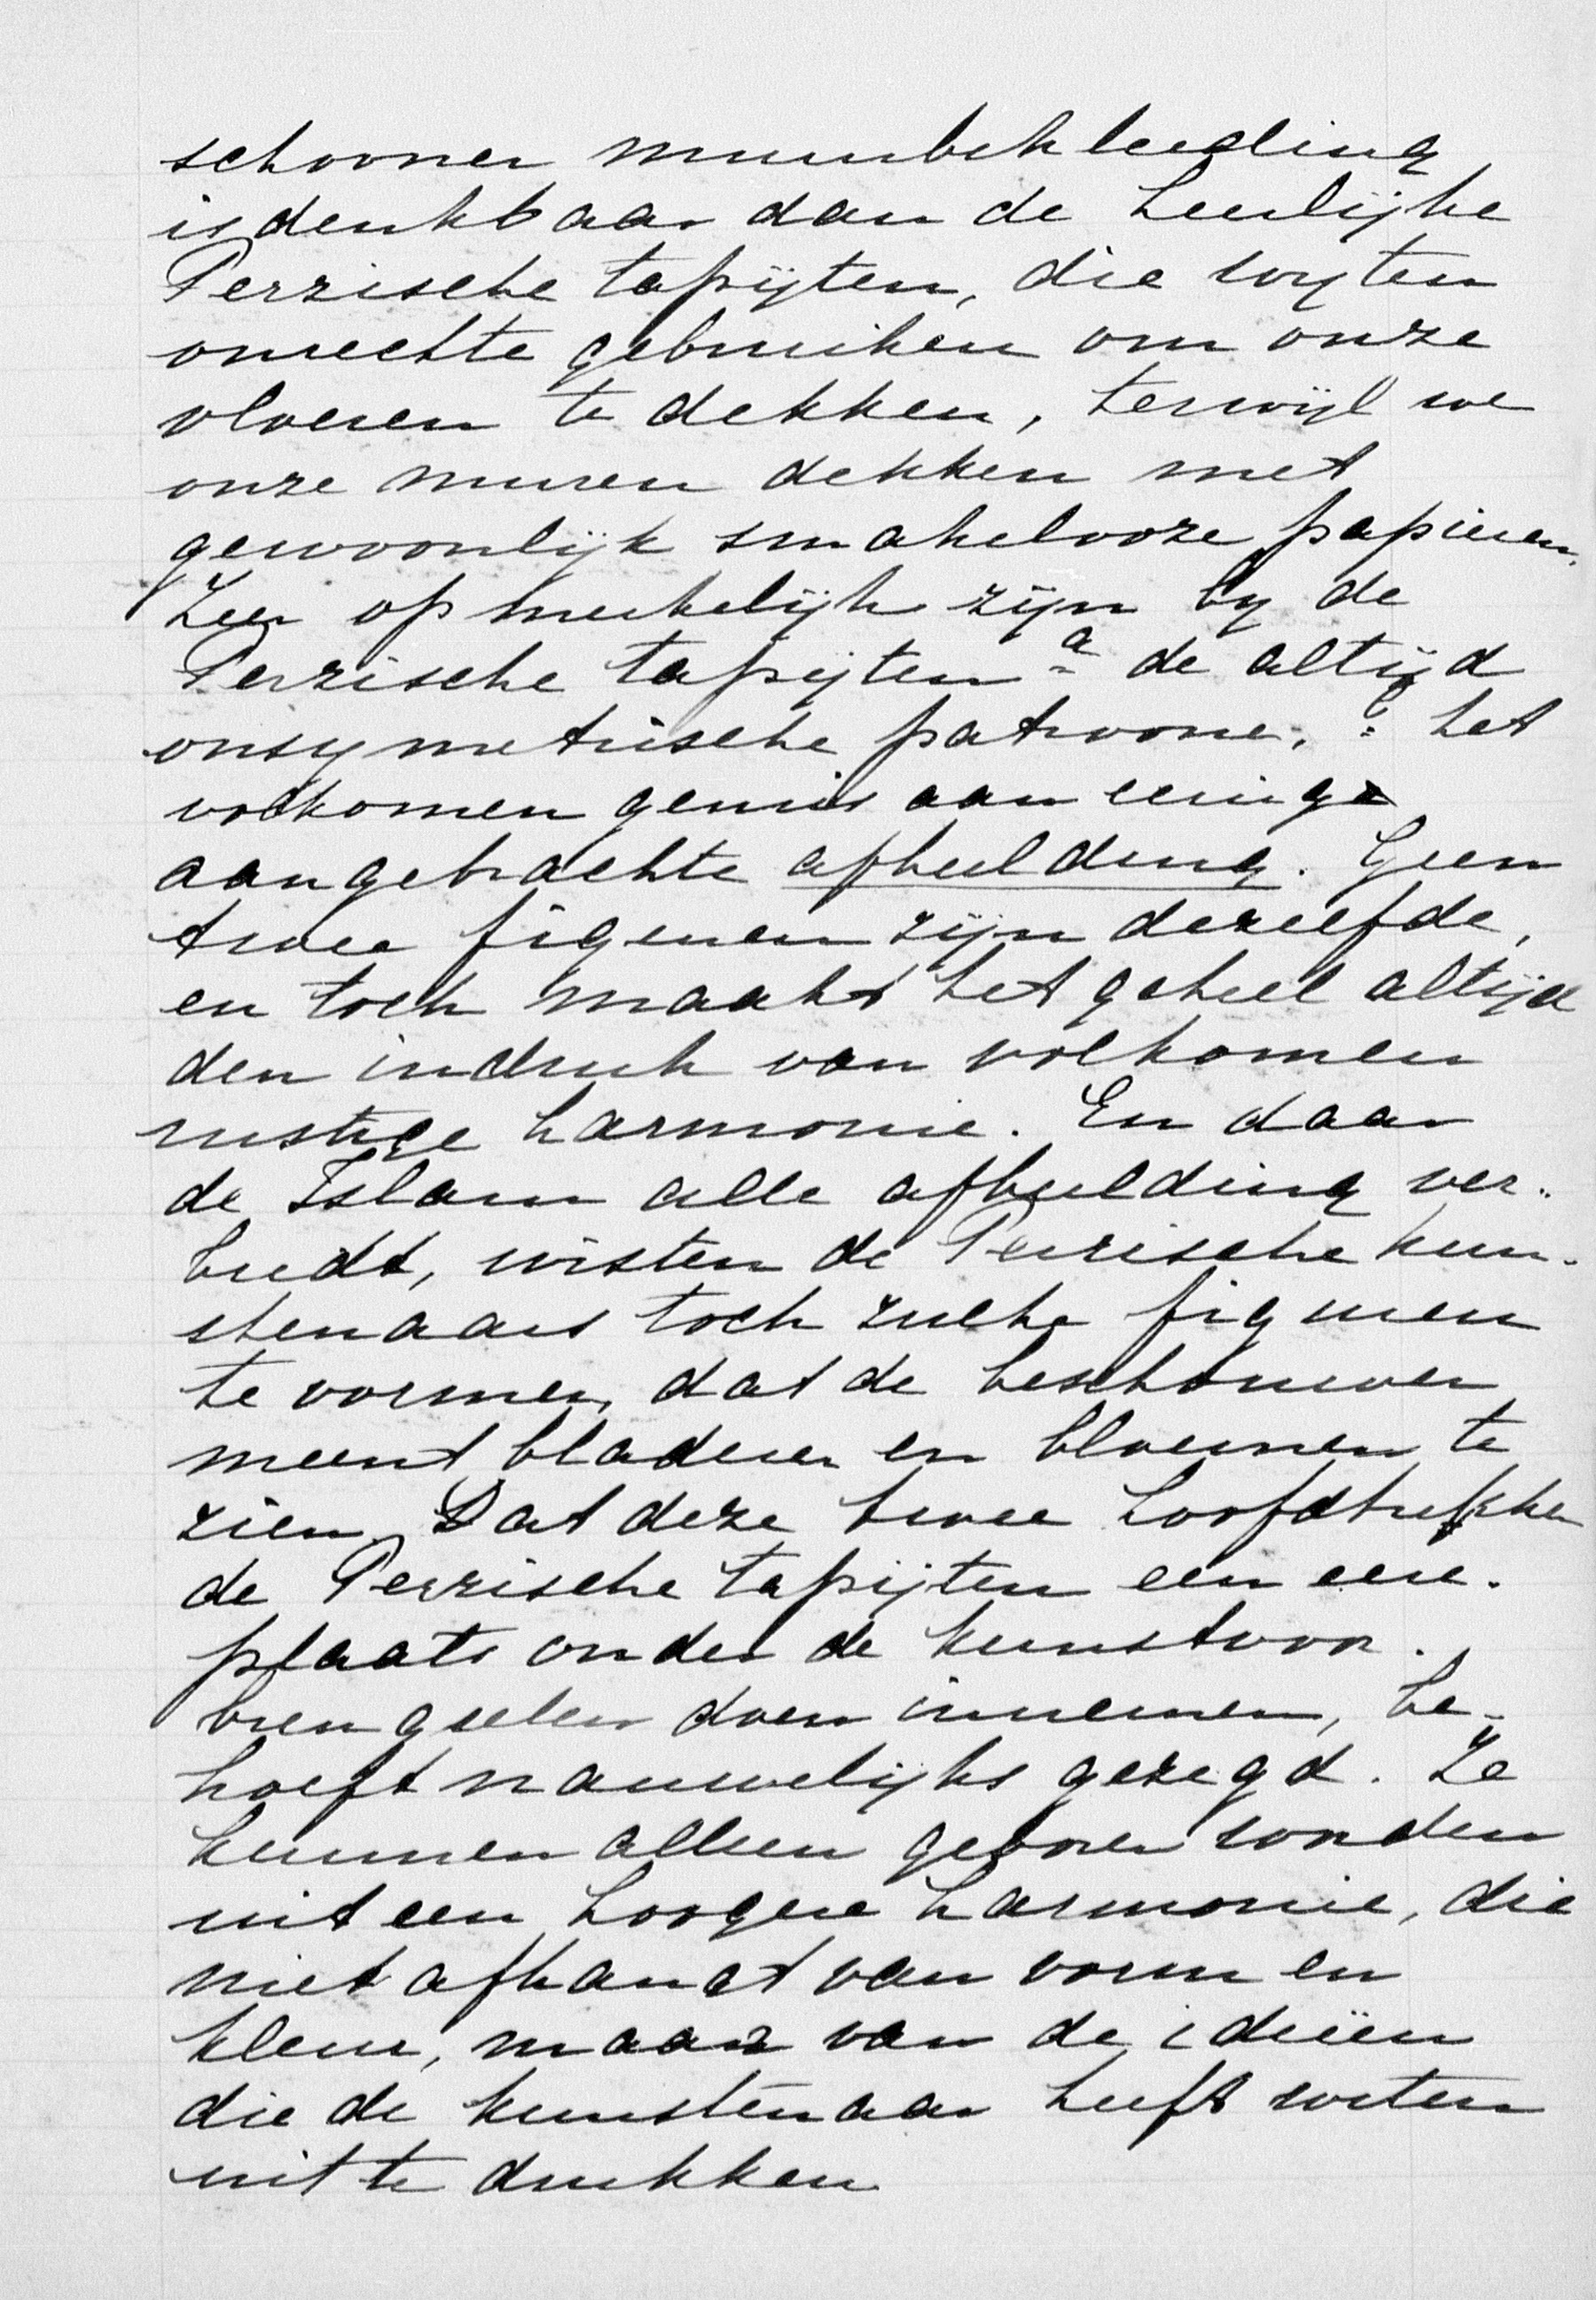 schooner muurbekleeding
is denkbaar dan de heerlijke
Perzische tapijten, die wij ten
onrechte gebruiken om onze
vloeren te dekken, terwijl we
onze muren dekken met
gewoonlijk smakelooze papieren.
Zeer opmerkelijk zijn bij de
Perzische tapijten a de altijd
onsymetrische patroone, het
volkomen gemis aan eenige
aangebrachte afbeelding. Geen
twee figuren zijn dezelfde,
en toch maakt het geheel altijd
den indruk van volkomen
rustige harmonie. En daar
de Islam alle afbeelding ver-
biedt, wisten de Perzische kun-
stenaars toch zulke figuren
te vormen, dat de beschouwer
meent bladeren en bloemen te
zien. Dat deze twee hoofdtrekken
de Perzische tapijten een eere-
plaats onder de kunstvoor-
brengselen doen innemen, be-
hoeft nauwelijks gezegd. Ze
kunnen alleen geboren worden
uit een hoogere harmonie, die
niet afhangt van vorm en
kleur, maar van de ideëen
die de kunstenaar heeft weten
uit te drukken